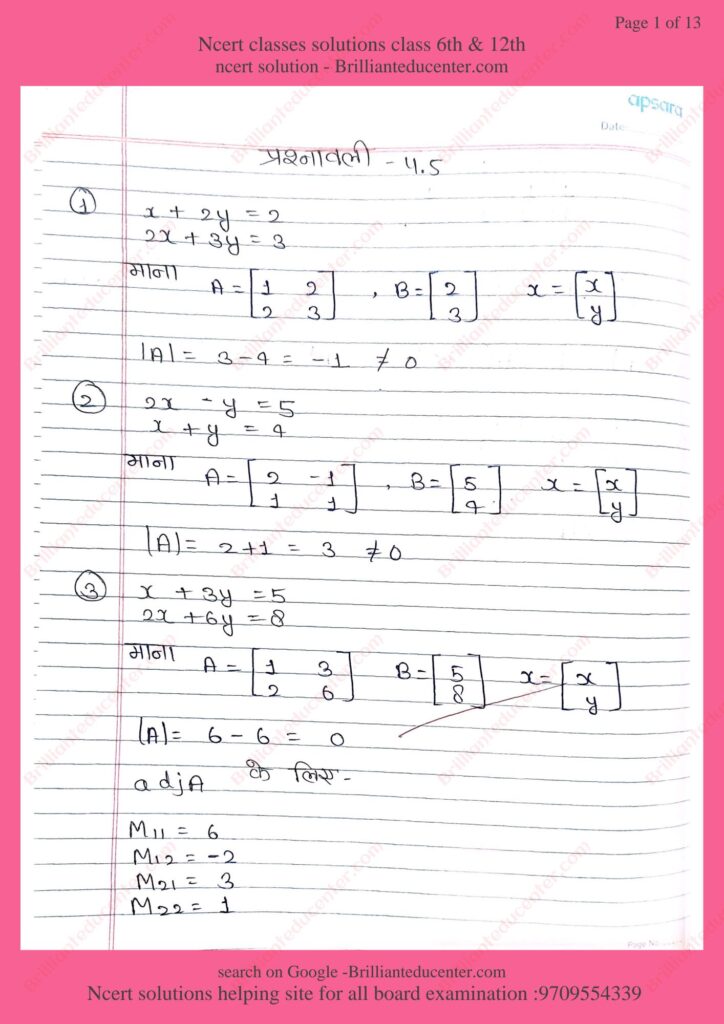 Page 1 of 13
Ncert classes solutions class 6th & 12th
ncert solution - Brillianteducenter.com
apsara
Date
प्रश्नावली - 4.5
① x + 2y = 2
2x + 3y = 3
माना A = [1 2 , B = [2 x = [x
2 3] 3] y]
|A| = 3 - 4 = -1 ≠ 0
② 2x - y = 5
x + y = 4
माना A = [2 -1 , B = [5 x = [x
1 1] 4] y]
|A| = 2+1 = 3 ≠ 0
③ x + 3y = 5
2x + 6y = 8
माना A = [1 3 B = [5 x = [x
2 6] 8] y]
|A| = 6 - 6 = 0
adjA के लिए -
M11 = 6
M12 = -2
M21 = 3
M22 = 1
Page No
search on Google -Brillianteducenter.com
Ncert solutions helping site for all board examination :9709554339